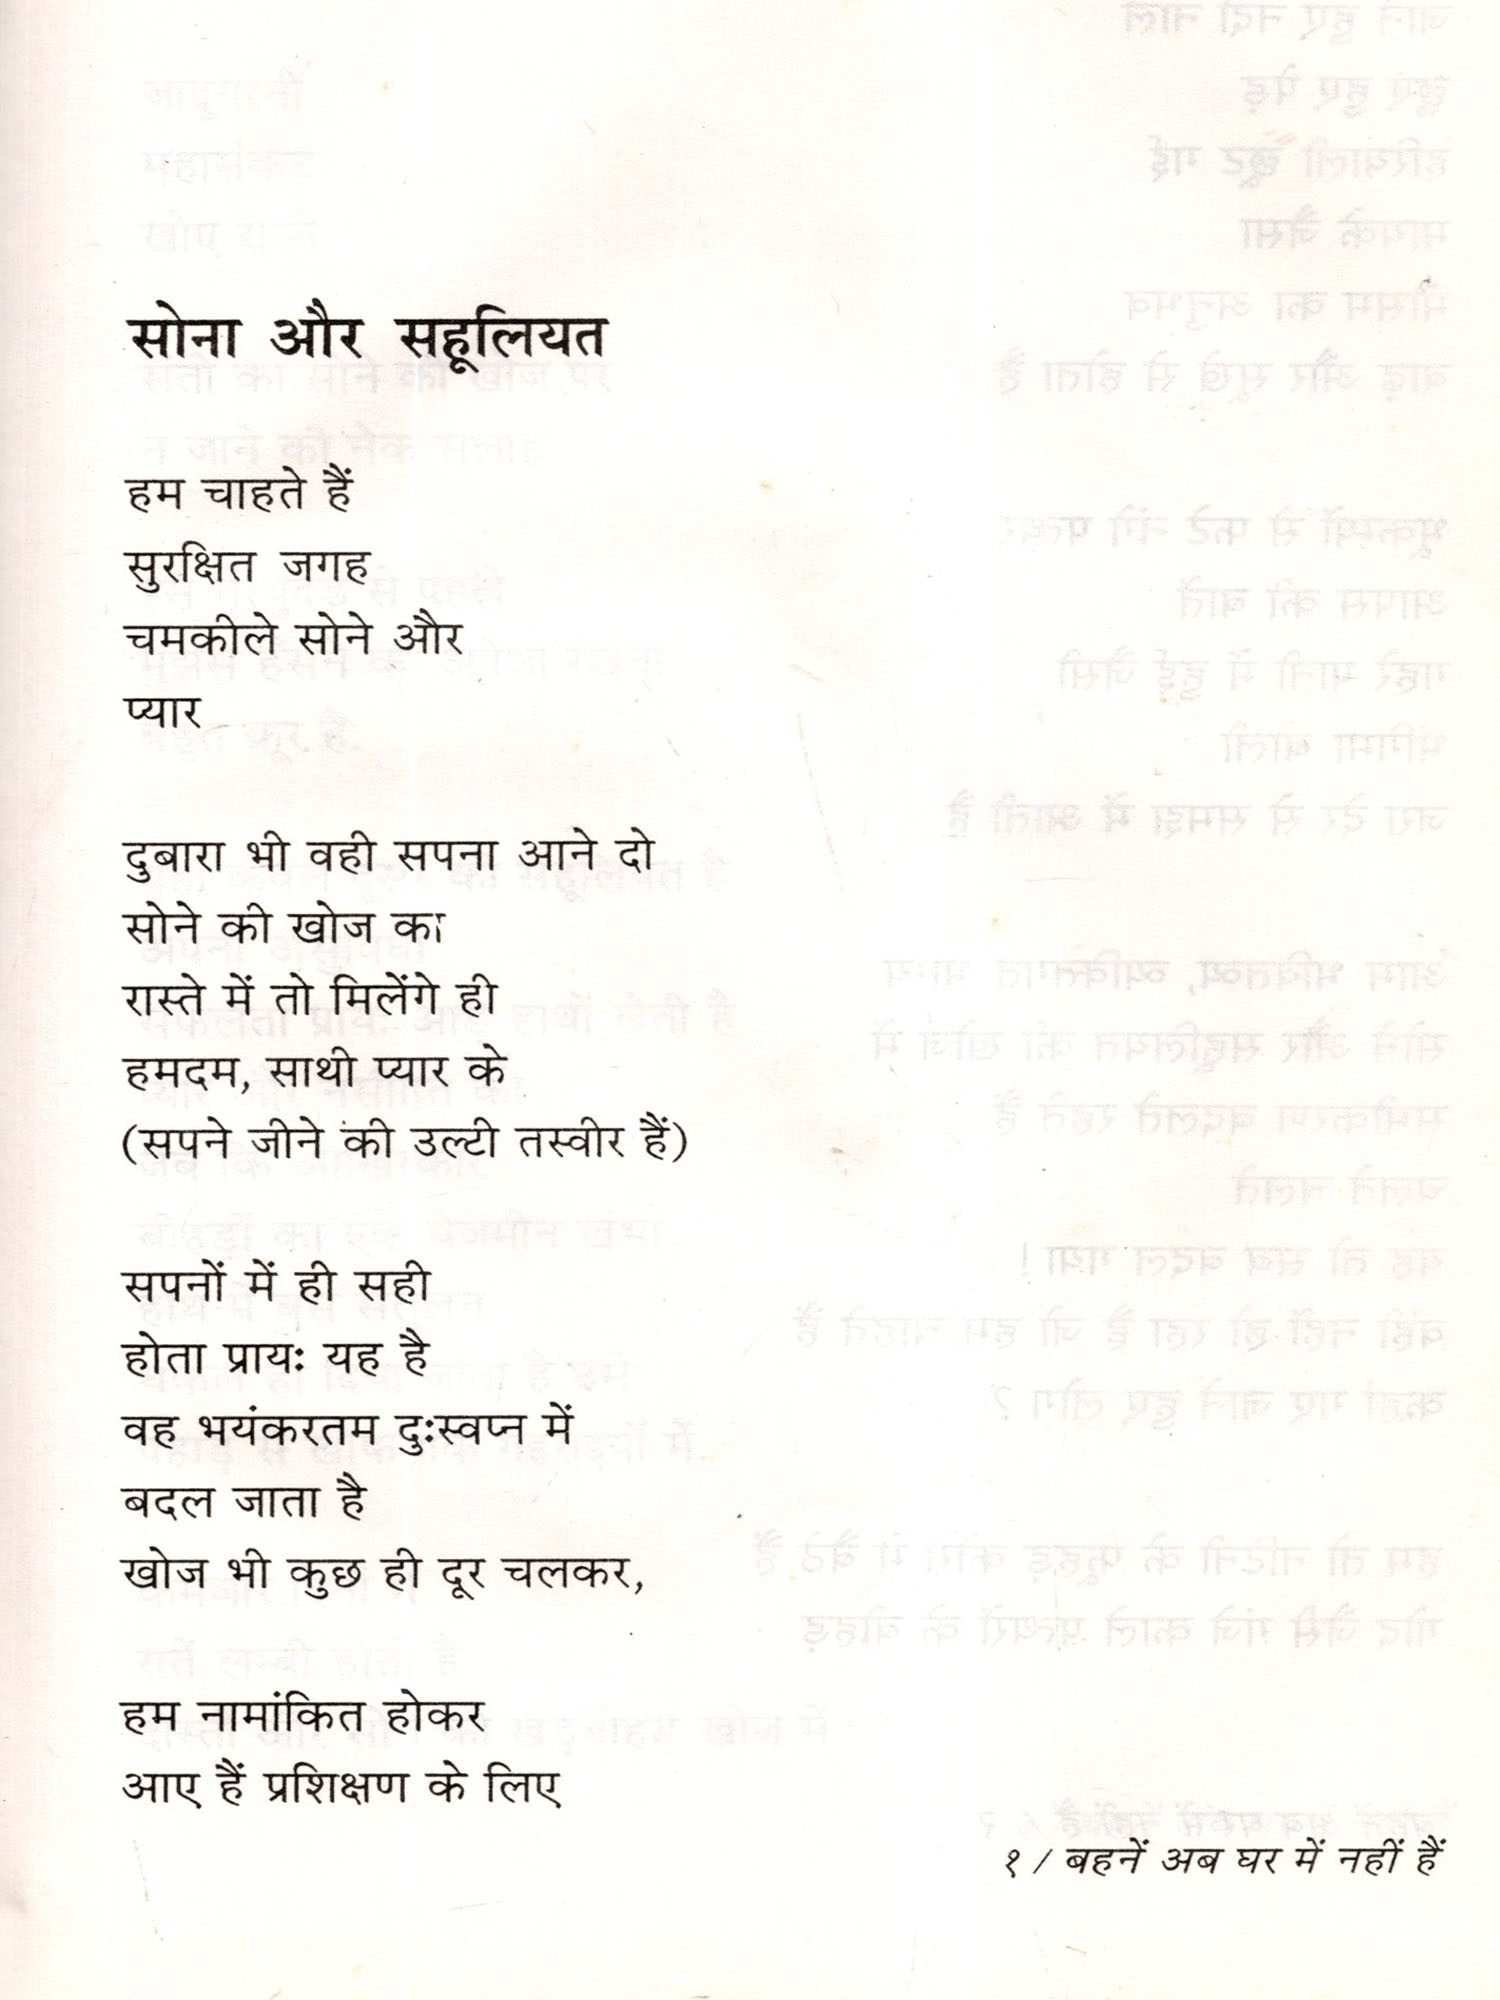 सोना और सहूलियत
हम चाहते हैं
सुरक्षित जगह
चमकीले सोने और
प्यार
दुबारा भी वही सपना आने दो
सोने की खोज का
रास्ते में तो मिलेंगे ही
हमदम, साथी प्यार के
(सपने जीने की उल्टी तस्वीर हैं)
सपनों में ही सही
होता प्रायः यह है
वह भयंकरतम दुःस्वप्न में
बदल जाता है
खोज भी कुछ ही दूर चलकर,
हम नामांकित होकर
आए हैं प्रशिक्षण के लिए
१ / बहनें अब घर में नहीं हैं